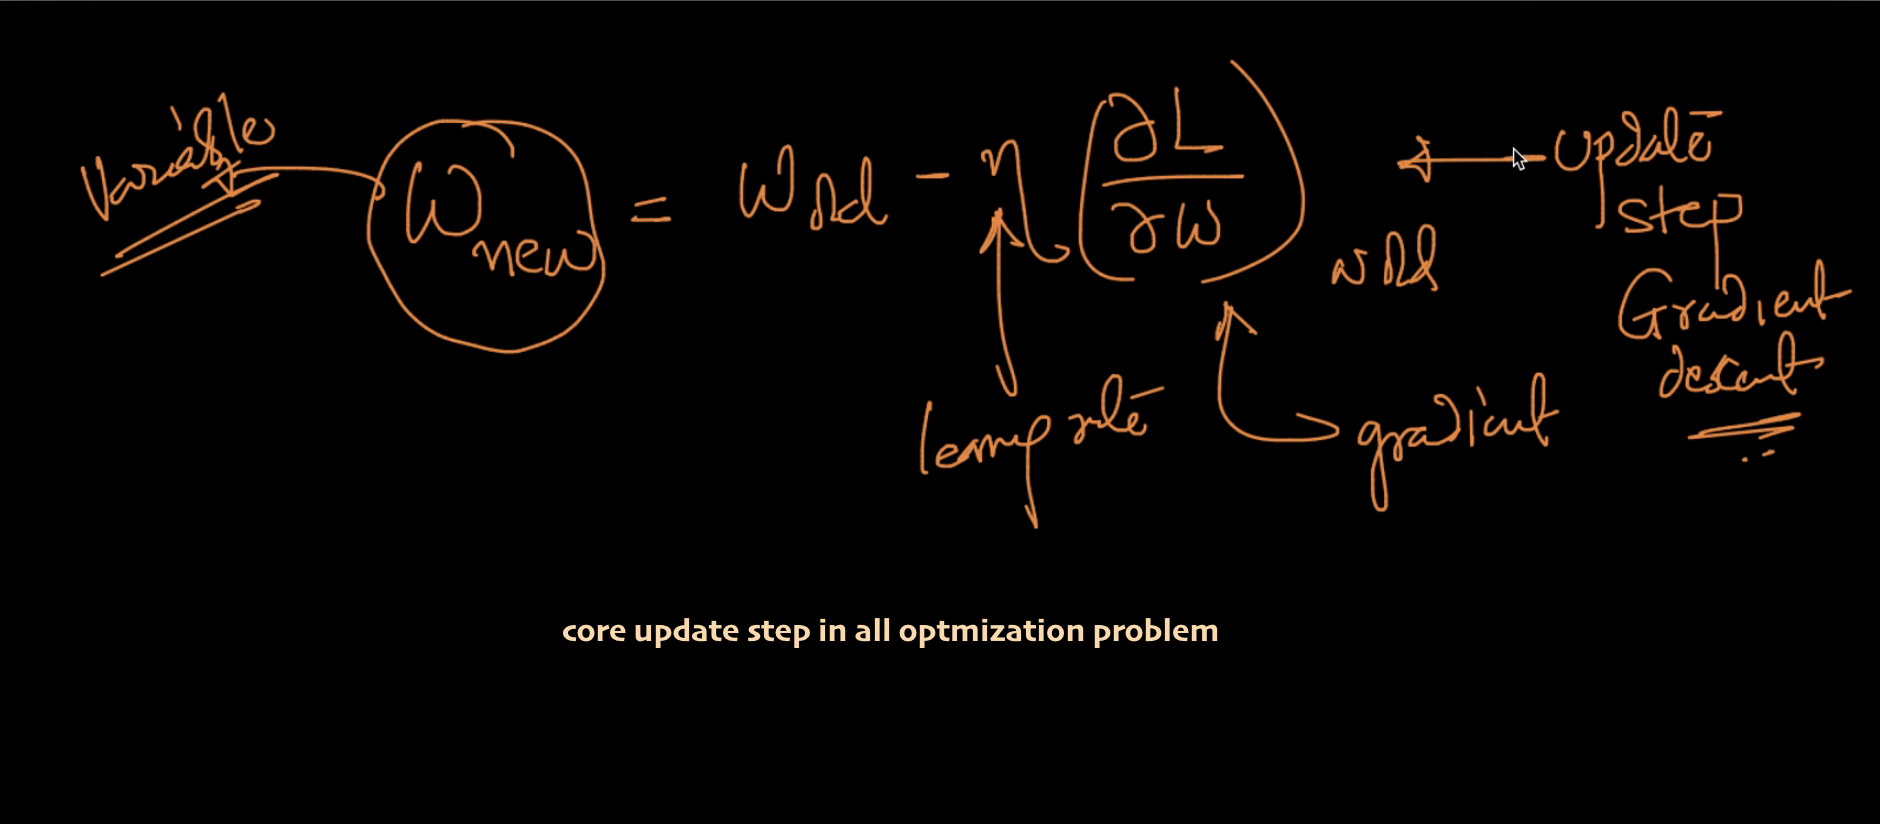 Variable
W new = W old - η (∂L / ∂W) w old
update
step
Gradient
descent
learning rate
gradient
core update step in all optmization problem